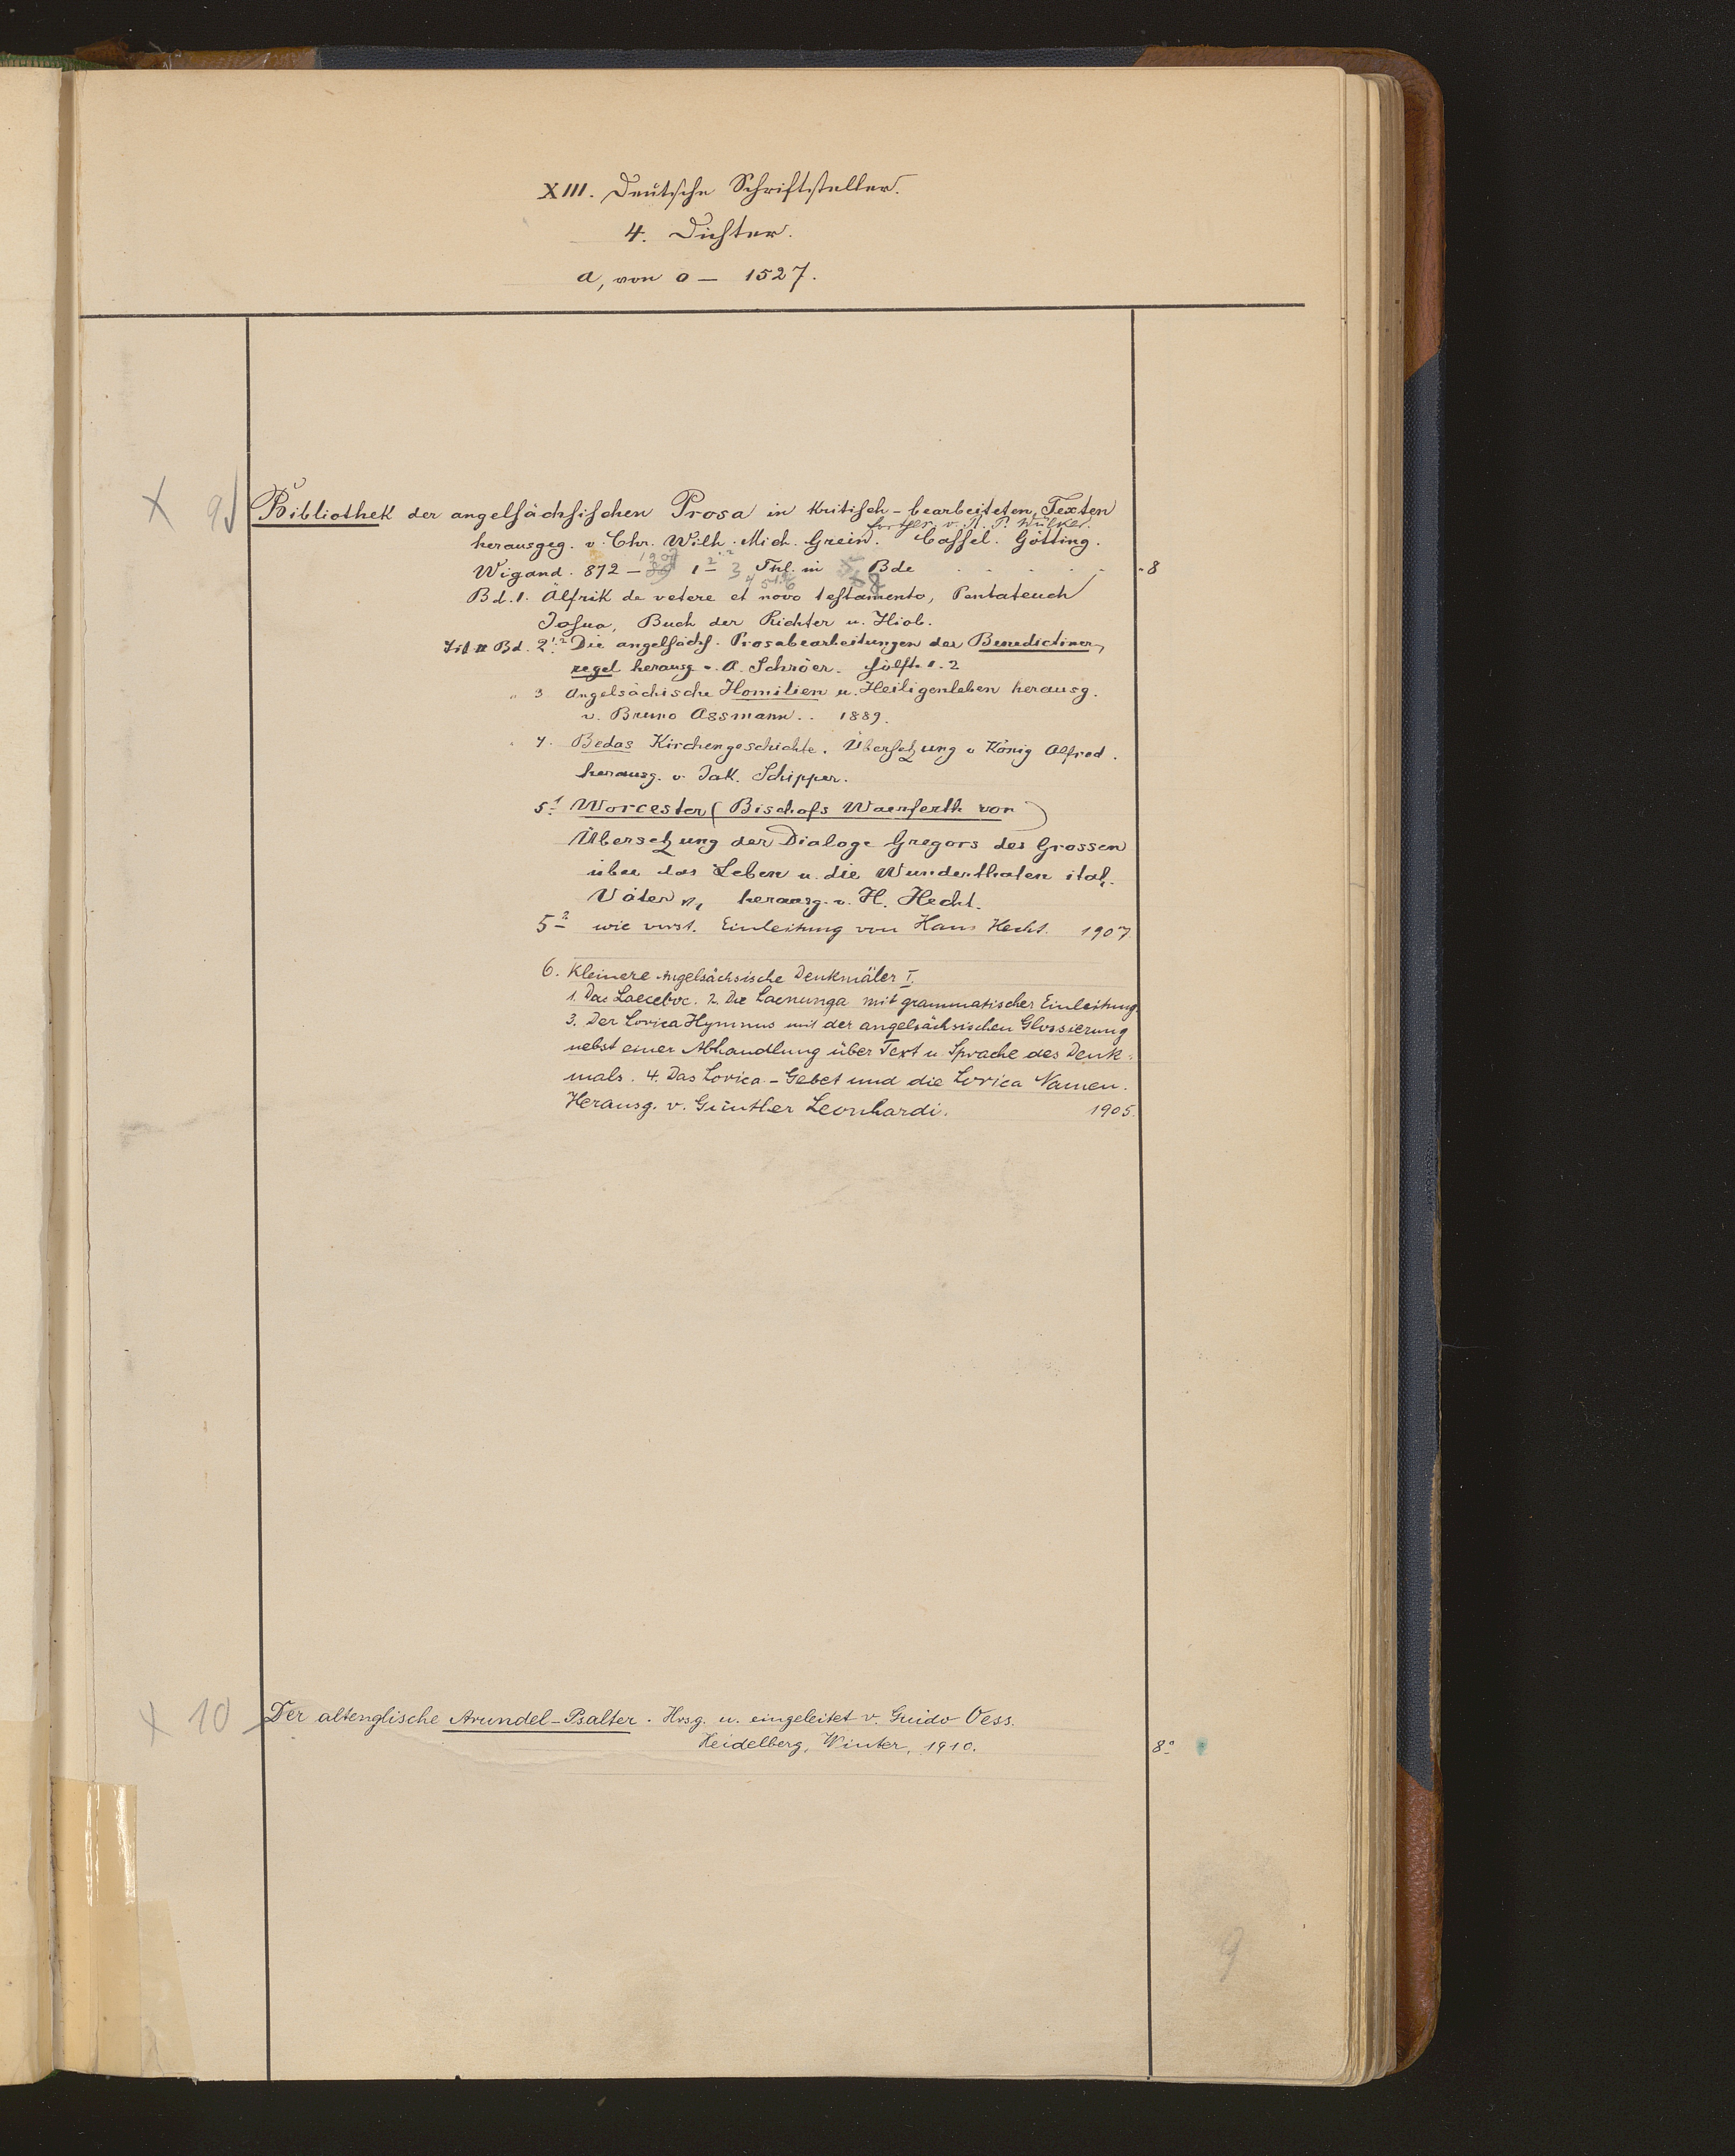 XIII. Deutsche Schriftsteller.
4. Dichter.
a, von 0 — 1527.
X 9 Bibliothek der angelsächsischen Prosa in kritisch-bearbeiteten Texten
fortges. v. R. P. Wülker.
herausgeg. v. Chr. Wilh. Mich. Grein. Cassel. Götting.
Wigand. 872 — 1907 1 — 3 Thl. in 8 Bde . . . . . 8
Bd. 1. Älfrik de vetere et novo testamento, Pentateuch
Josua, Buch der Richter u. Hiob.
Bd. 2 1.2 Die angelsächs. Prosabearbeitungen der Benedictiner-
regel herausg v. A. Schröer. Hälfte 1. 2
" 3 Angelsächische Homilien u. Heiligenleben herausg.
v. Bruno Assmann.. 1889.
" 4. Bedas Kirchengeschichte. Übersetzung v König Alfred.
herausg. v. Jak. Schipper.
5.1 Worcester (Bischofs Waerferth von)
Übersetzung der Dialoge Gregors des Grossen
über das Leben u. die Wunderthaten ital.
Väter, herausg. v. H. Hecht.
5 2 wie vorst. Einleitung von Hans Hecht. 1907.
6. Kleinere Angelsächsische Denkmäler I.
1. Das Laeceboc. 2. Die Lacnunga mit grammatischer Einleitung.
3. Der Lorica Hymnus mit der angelsächsischen Glossierung
nebst einer Abhandlung über Text u. Sprache des Denk-
mals. 4. Das Lorica-Gebet und die Lorica Namen.
Herausg. v. Günther Leonhardi. 1905.
X 10 Der altenglische Arundel-Psalter. Hrsg. u. eingeleitet v. Guido Oess.
Heidelberg, Winter, 1910. 8°
9